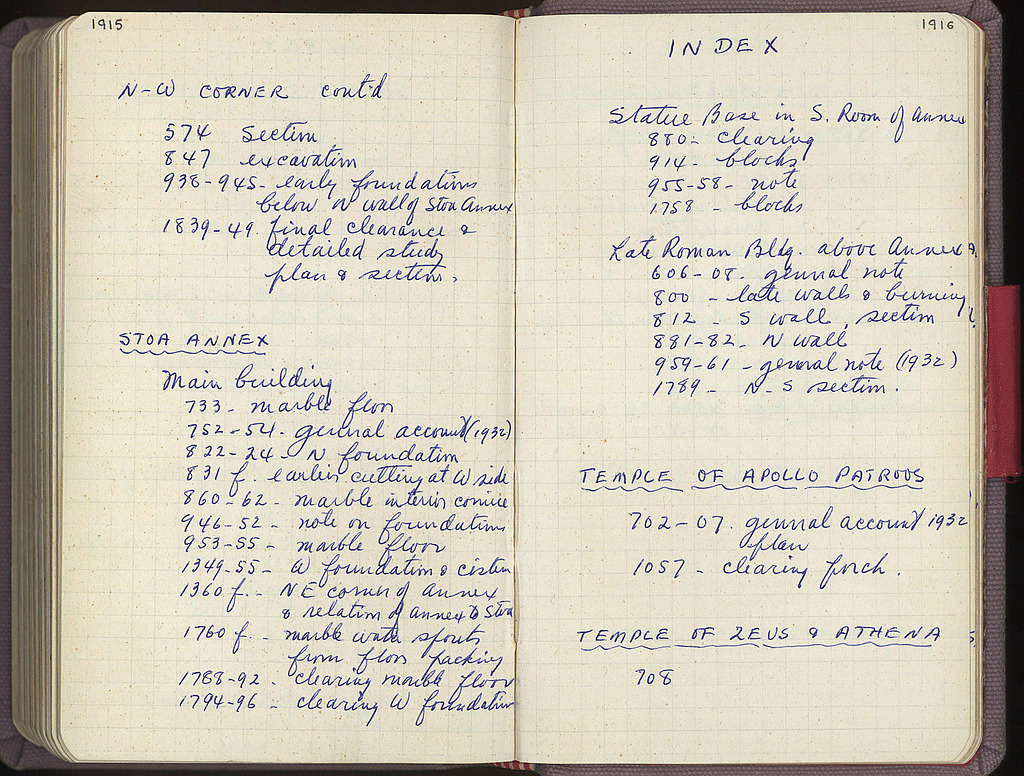 1915
N-W CORNER cont'd
574 Section
847 excavation
938-945- early foundations
below N wall of Stoa Annex
1839-49. final clearance &
detailed study
plan & section.
STOA ANNEX
Main building
733- marble floor
752-54- general account (1932)
822-24- N foundation
831 f. earlier cutting at W side
860-62- marble interior cornice
946-52- note on foundations
953-55- marble floor
1349-55- W foundation & cistern
1360 f. - NE corner of Annex
& relation of annex to Stoa
1760 f. - marble water spouts
from floor packing
1788-92- clearing marble floor
1794-96- clearing W foundation
1916
INDEX
Statue Base in S. Room of Annex
880- clearing
914- blocks
955-58- note
1758- blocks
Late Roman Bldg. above Annex
606-08. general note
800 - late walls & burning
812 - S wall, section
881-82- N wall
959-61- general note (1932)
1789- N-S section.
TEMPLE OF APOLLO PATROOS
702-07. general account 1932
plan
1057- clearing porch.
TEMPLE OF ZEUS & ATHENA
708